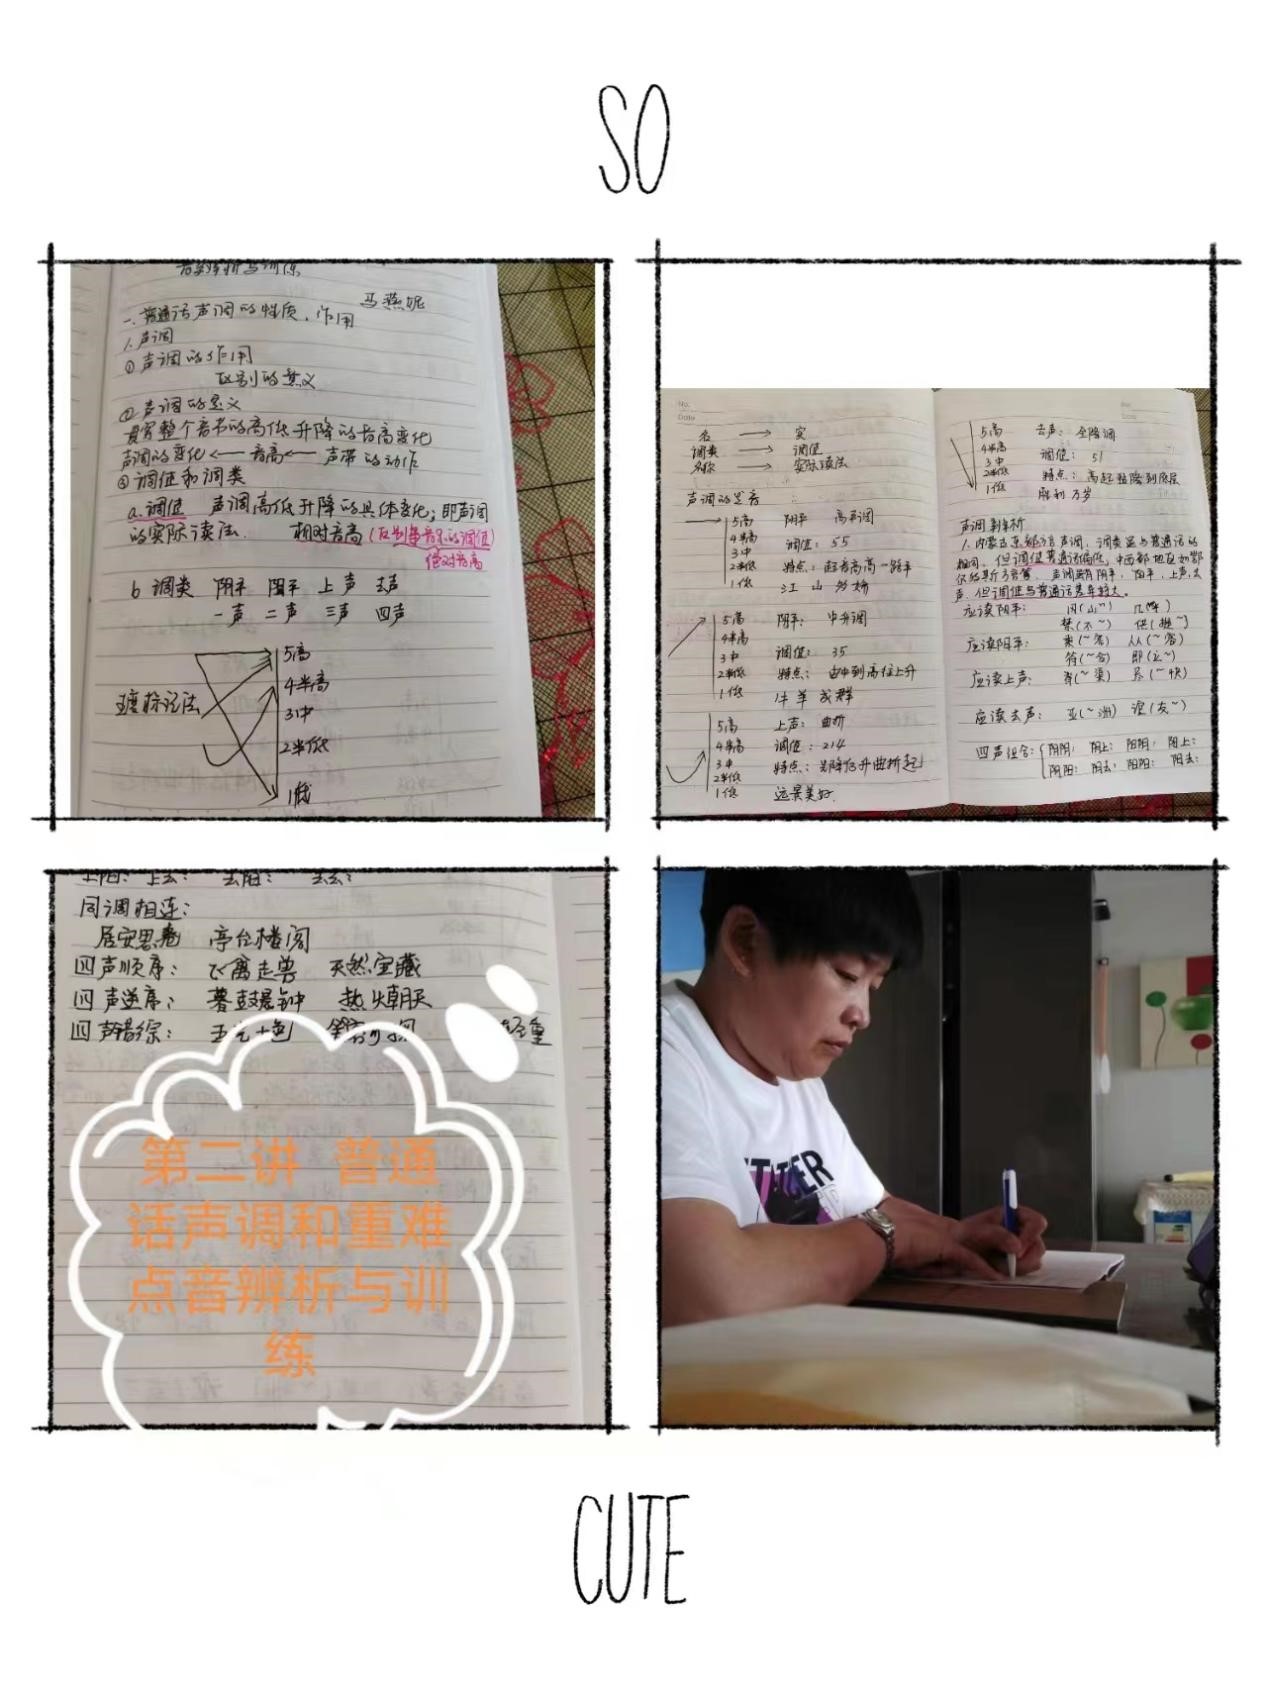 SO
音辨析与训练
马燕妮
一.普通话声调的性质、作用
1.声调
①声调的作用
区别的意义
②声调的意义
贯穿整个音节的高低升降的音高变化
声调的变化←音高←声带的动作
③调值和调类
a.调值 声调高低升降的具体变化;即声调
的实际读法. 相对音高(区别每音节的调值)
绝对音高
b 调类 阴平 阳平 上声 去声
一声 二声 三声 四声
五度标记法
5高
4半高
3中
2半低
1低
No:
Date
名 → 实
调类 → 调值
名称 → 实际读法
声调的发音
5高 阴平 高平调
4半高
3中 调值:55
2半低 特点:起音高高一路平
1低 江山多娇
5高 阳平: 中升调
4半高
3中 调值:35
2半低 特点:由中到高往上升
1低 牛羊成群
5高 上声:曲折
4半高 调值:214
3中 特点:先降后升曲折起
2半低
1低 远景美好.
5高 去声:全降调
4半高
3中 调值:51
2半低 特点:高起猛降到底层
1低 胜利万岁
声调辨析
1.内蒙古东部方言声调,调类虽与普通话的
相同,但调值普通话偏低,中西部地区如鄂
尔多斯方言等,声调虽有阴平,阳平,上声,去
声,但调值与普通话差异较大。
应读阴平:
禁(不~) 供(提~)
应读阳平: 答(~答) 从(~容)
符(~合) 即(立~)
应读上声: 脊(~梁) 尽(~快)
应读去声: 亚(~洲) 谊(友~)
四声组合: 阴阴: 阴上: 阳阴: 阳上:
阴阳: 阴去: 阳阳: 阳去:
上阳: 上去: 去阳: 去去:
同调相连:
居安思危 亭台楼阁
四声顺序: 飞禽走兽 天然宝藏
四声逆序: 暮鼓晨钟 热火朝天
四声错综: 五光十色 轻重
第二讲 普通
话声调和重难
点音辨析与训
练
CUTE